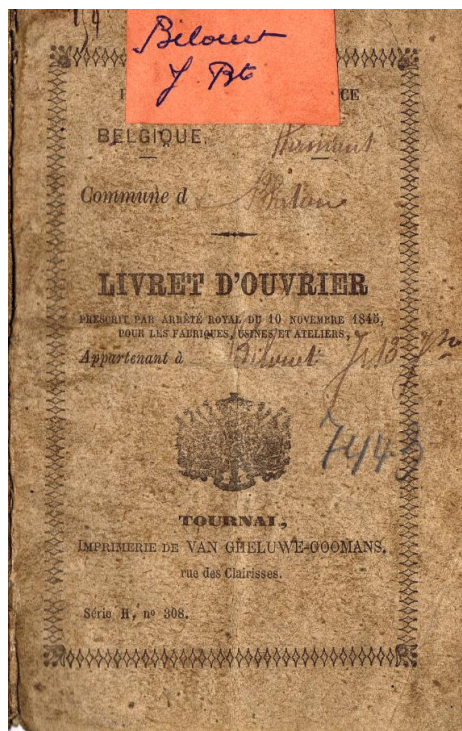 Bilouet
J Bte
CE
BELGIQUE.
Commune d
LIVRET D'OUVRIER
PRESCRIT PAR ARRÊTÉ ROYAL DU 10 NOVEMBRE 1845,
POUR LES FABRIQUES, USINES ET ATELIERS,
Appartenant à Bilouet J B
7443
TOURNAI,
IMPRIMERIE DE VAN GHELUWE-COOMANS,
rue des Clairisses.
Série H, nº 308.